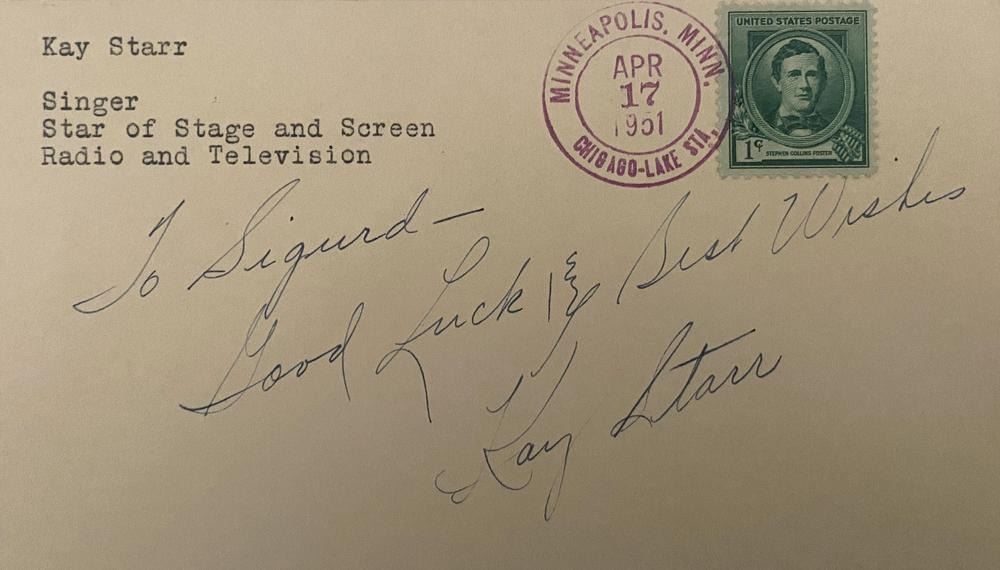 Kay Starr
Singer
Star of Stage and Screen
Radio and Television
MINNEAPOLIS, MINN.
APR
17
1951
CHICAGO-LAKE STA.
UNITED STATES POSTAGE
1¢
STEPHEN COLLINS FOSTER
To Sigurd—
Good Luck & Best Wishes
Kay Starr